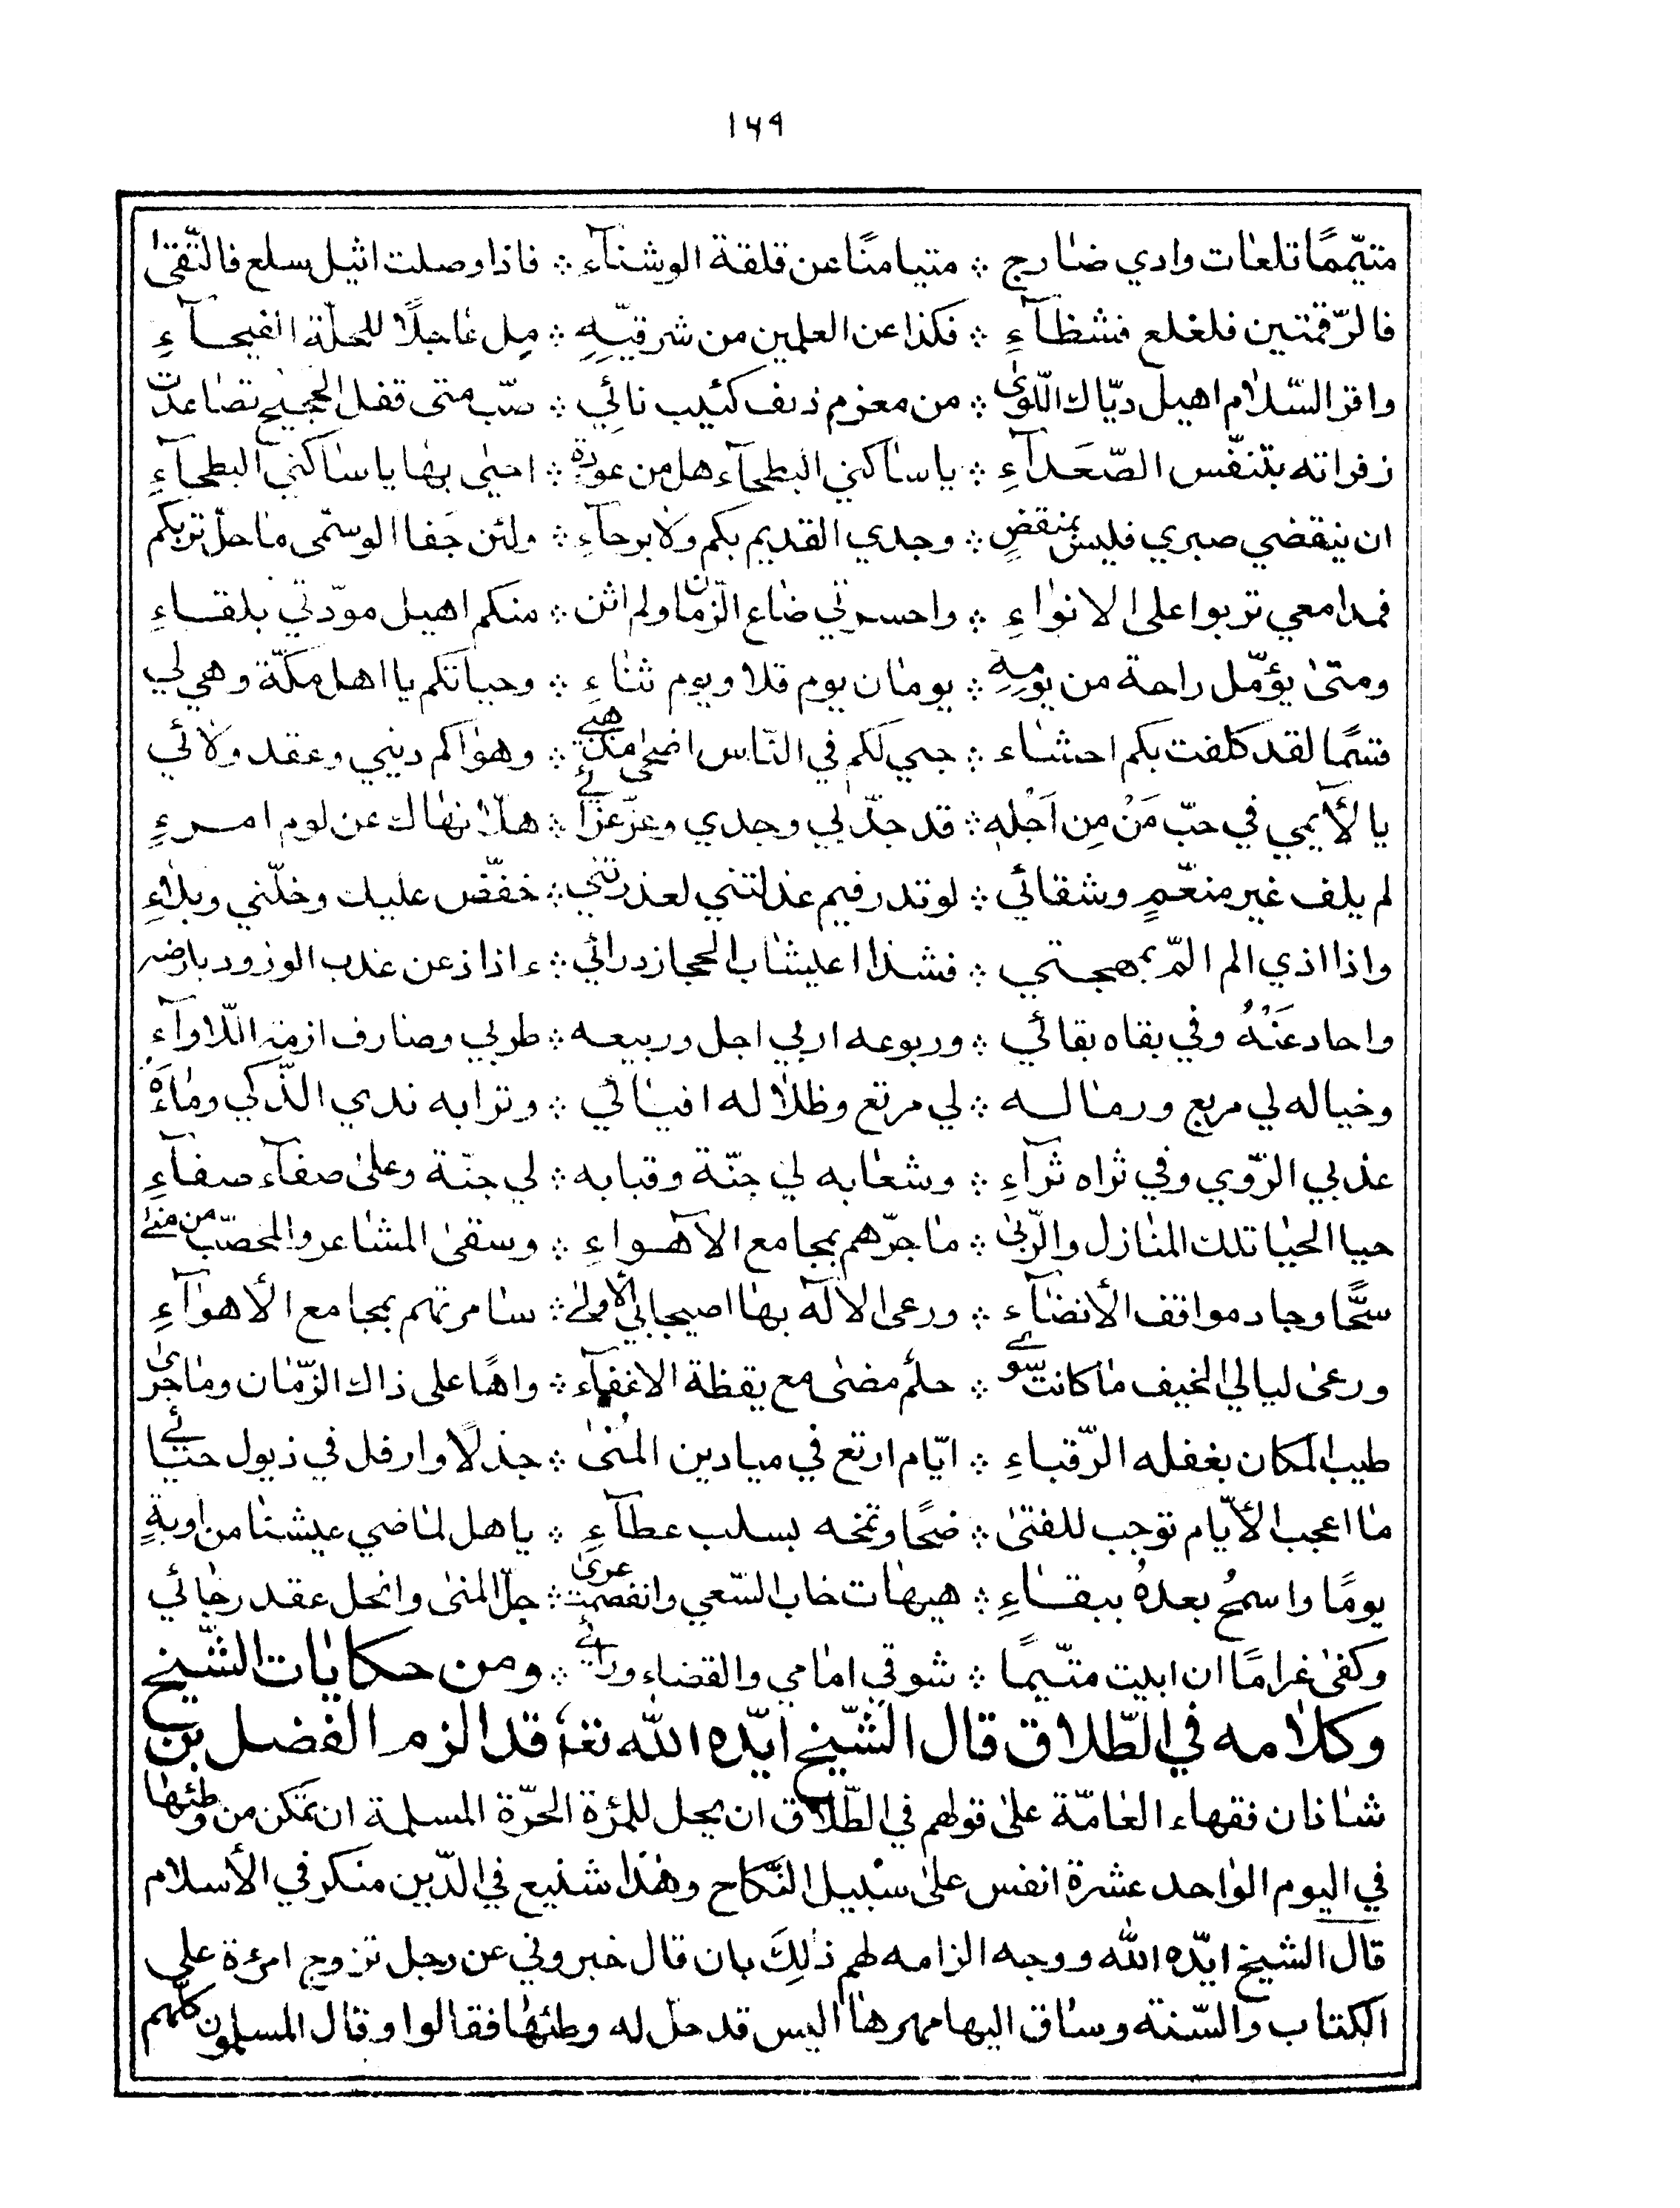 ١٦٩
متيّممًا تلعات وادي ضارج ∴ متيامنًا عن قلقة الوشنآءِ ∴ فاذا وصلت اثيل سلع فالنّقىٰ
فالرّقمتين فلعلع فشظآءِ ∴ فكذا عن العلمين من شرقيّهِ ∴ مِل عاجلًا للحلّة الفيحآءِ
واقرا السّلام اهيل ديّاك اللّوىٰ ∴ من مغرم ذنف كئيب نائي ∴ صبّ متى قفل الحجيج تصاعدت
زفراته بتنفّس الصّعَدآءِ ∴ يا ساكني البطحآء هل من عودة ∴ احيٰى بها يا ساكني البطحآءِ
ان ينقضي صبري فليس بمنقضٍ ∴ وجدي القديم بكم ولا برحآءِ ∴ ولئن جَفا الوسمّى ماحلّ تربكم
فمدامعي تربوا على الانواءِ ∴ واحسرتي ضاع الزّمان ولم اثن ∴ منكم اهيل مودّتي بلقاءِ
ومتىٰ يؤمّل راحة من يومِهِ ∴ يومان يوم قلا ويوم ثناءِ ∴ وحياتكم يا اهل مكّة وهي لي
قسمًا لقد كلفت بكم احشاء ∴ حبي لكم في النّاس اضحىٰ مذهبي ∴ وهواكم ديني وعقد ولائي
يا لأيمي في حبّ مَنْ مِن اَجْلهِ ∴ قد جدّ لي وجدي وعزّ عزائي ∴ هلّا نهاك عن لوم امرءٍ
لم يلف غير منعّمٍ وشقائي ∴ لو تدر فيم عذلتني لعذرتني ∴ خفّض عليك وخلّني وبلاءِ
واذا اذي الم المّ بمهجتي ∴ فشذا اعيشاب الحجاز درائي ∴ ءاذاذ عن عذب الورود بارضه
واحاد عَنْهُ وفي بقاه بقائي ∴ وربوعه اربي اجل وربيعه ∴ طربي وصارف ازمة اللّاوآء
وخباله لي مربع ورماله ∴ لي مرتع وظلاله افيائي ∴ وترابه ندي الذّكي وماءَهُ
عذبي الرّوي وفي ثراه ثرآءِ ∴ وشعابه لي جنّة وقبابه ∴ لي جنّة وعلىٰ صفآء صفآءِ
حيا الحيا تلك المنازل والرّبىٰ ∴ ماجرّهم بمجامع الآهواءِ ∴ وسقىٰ المشاعر والمحصّب من منىٰ
سحًّا وجاد مواقف الأنضآءِ ∴ ورعى الالٓه بها اصيحابي الأولىٰ ∴ سامرتهم بمجامع الأهوآءِ
ورعىٰ ليالي الخيف ماكانت سّوي ∴ حلم مضىٰ مع يقظة الاغفآء ∴ واهًا على ذاك الزّمان وماجرىٰ
طيب المكان بغفله الرّقباءِ ∴ ايّام ارتع في ميادين المُنىٰ ∴ جذلًا وارفل في ذيول حبائي
ما اعجب الأيّام توجب للفتىٰ ∴ ضحًا وتمخه بسلب عطآءِ ∴ يا هل لماضي عيشنا من اوبةٍ
يومًا واسمحُ بعدهُ ببقاءِ ∴ هيهات خاب السّعي وانفصمت عرىٰ ∴ جلّ المنىٰ وانحل عقد رجائي
وكفىٰ غرامًا ان ابيت متيّمًا ∴ شوقي امامي والقضاء ورائي ∴ ومن حكايات الشّيخ
وكلامه في الطّلاق قال الشّيخ ايّده الله تعا قد الزم الفضل بن
شاذان فقهاء العامّة علىٰ قولهم في الطّلاق ان يحل للمرُة الحرّة المسلمة ان تمّكن من وطئها
في اليوم الواحد عشرة انفس علىٰ سبيل النّكاح وهٰذا شنيع في الدّين منكر في الأسلام
قال الشيخ ايّده الله ووجه الزامه لهم ذٰلِكَ بان قال خبروني عن رجل تزوج امرُة علي
الكتاب والسّنة وساق اليها مهرها اليس قد حلّ له وطئها فقالوا وقال المسلمون كلّهم